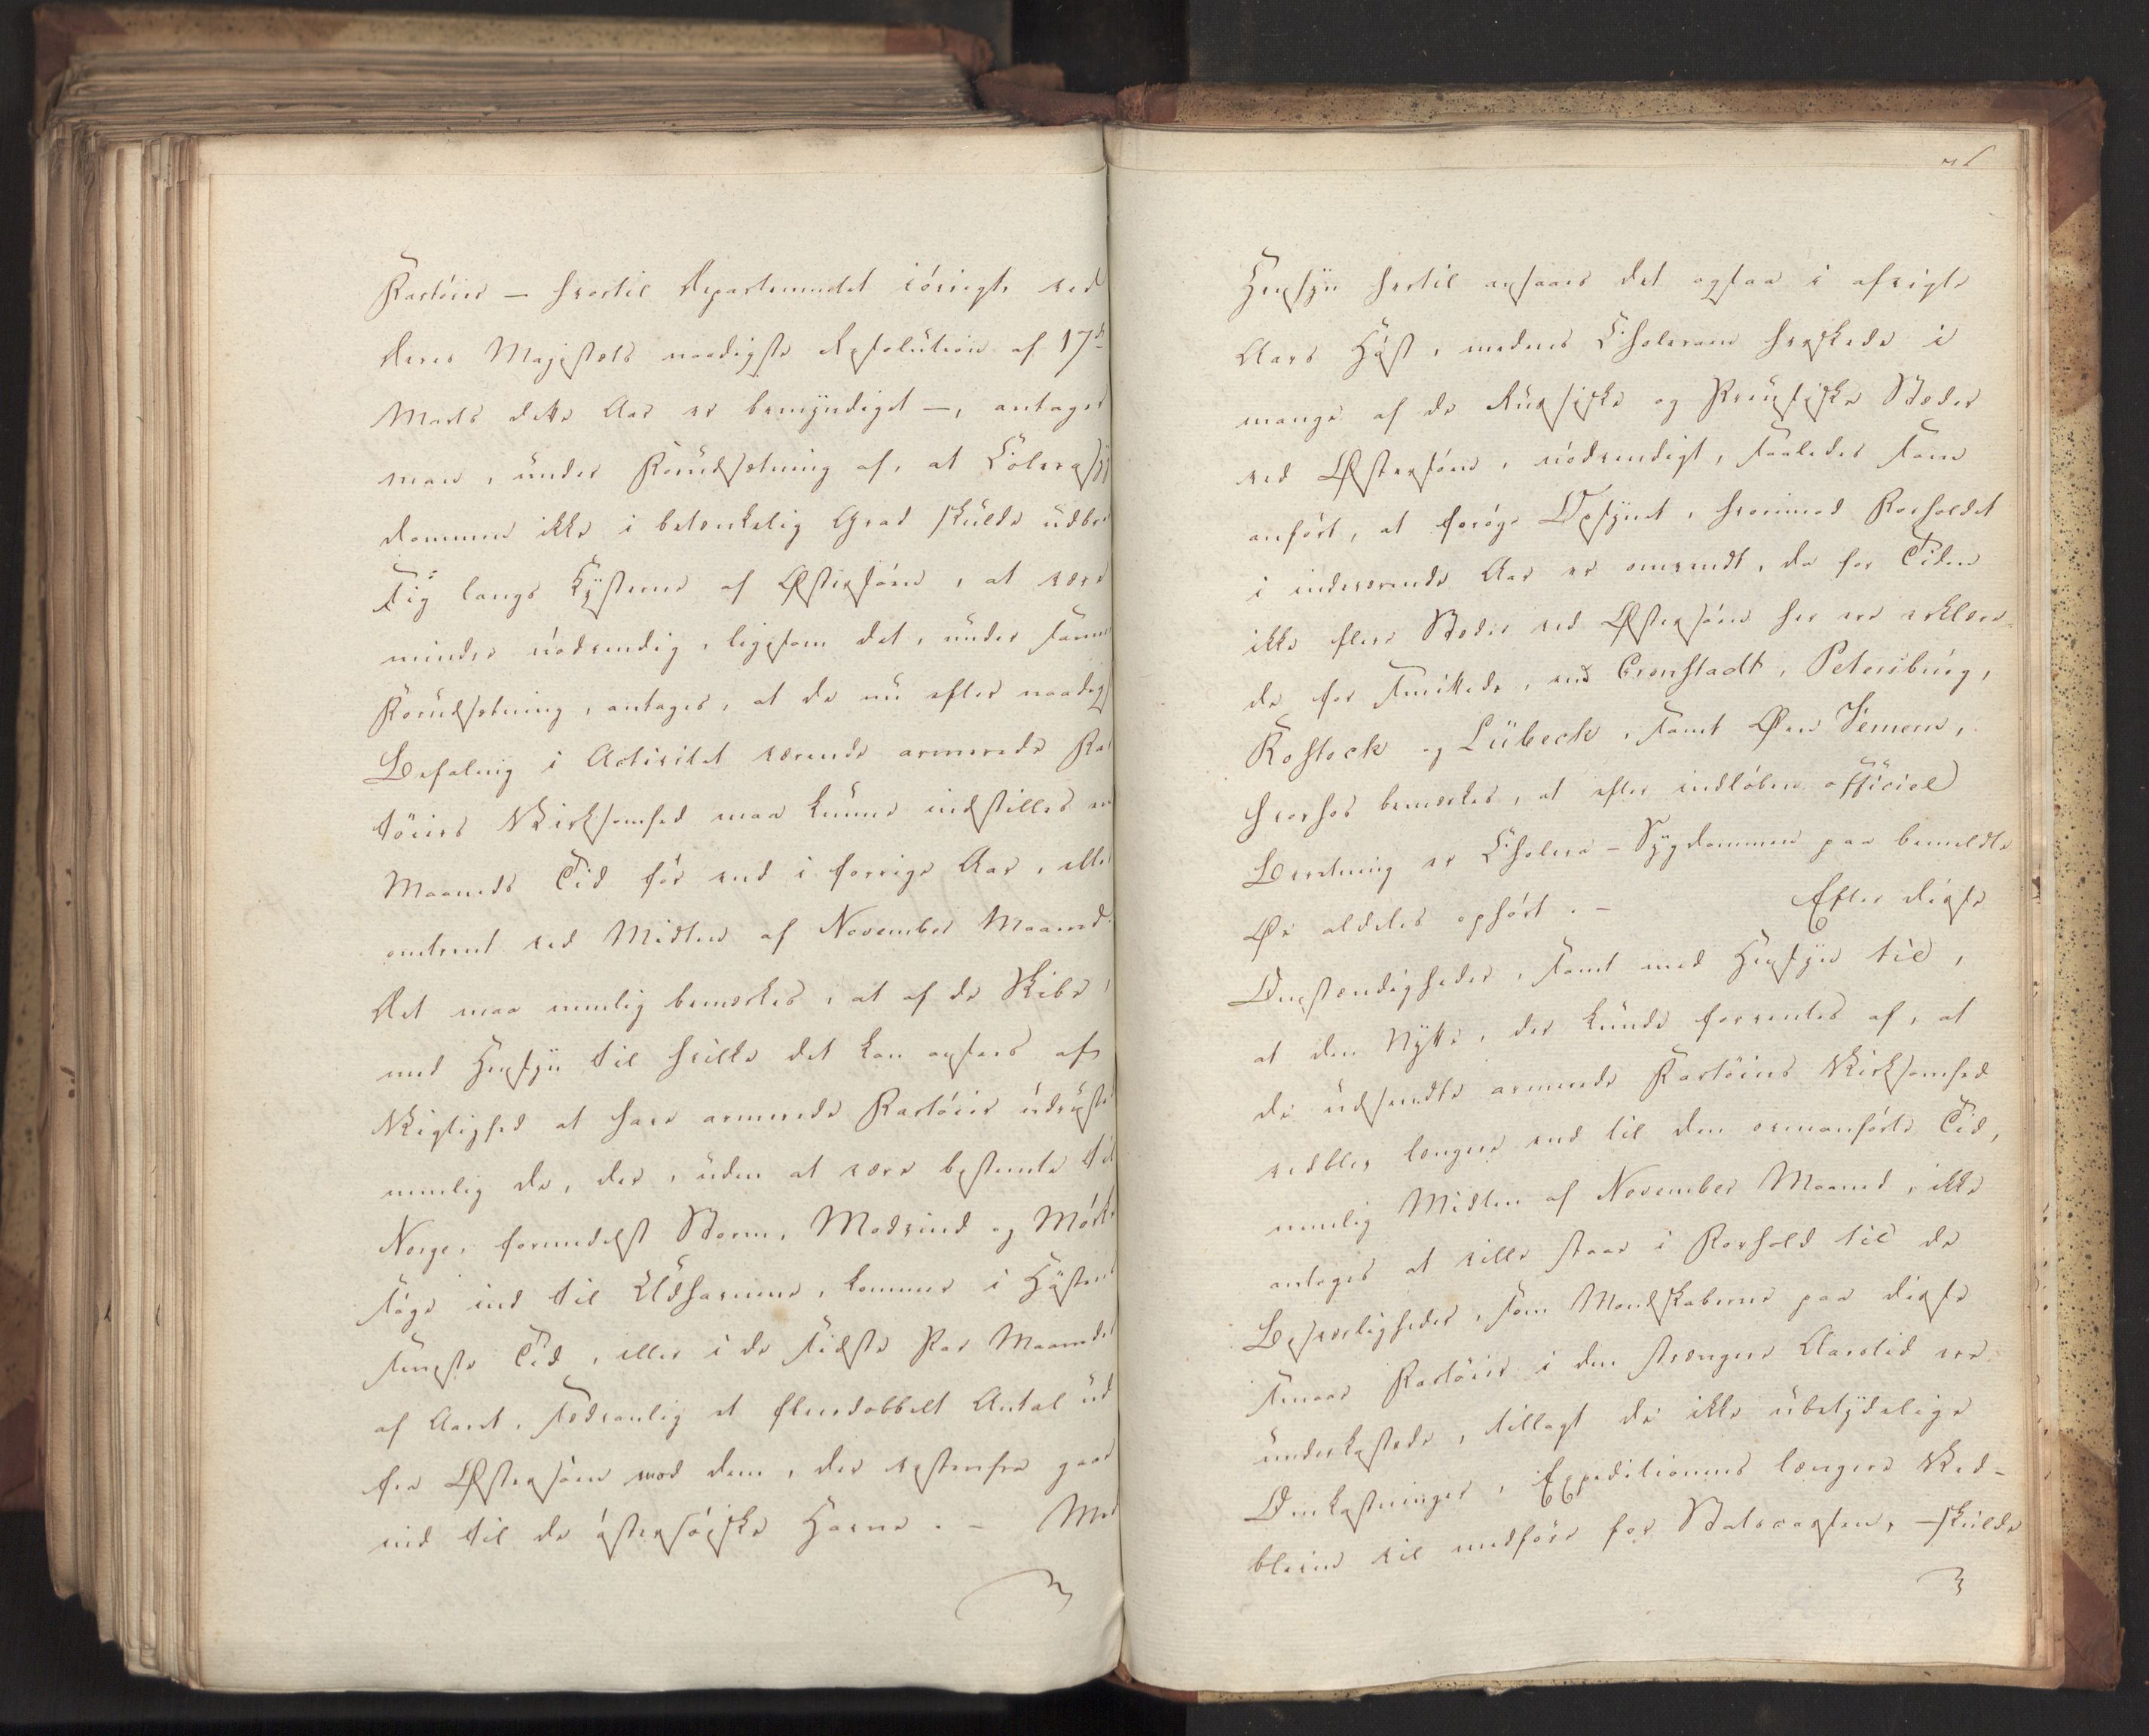 Fartöier — hvortil Departementet iövrigt ved
Deres Majestæts naadigste Resolution af 17de
Marts dette Aar er bemyndiget —, antager
man, under Forudsætning af, at Colerasÿg
dommen ikke i betænkelig Grad skulde udbre
sig langs Kÿsterne af Østersöen, at være
mindre nödvendig, ligesom det, under samme
Forudsætning, antages, at de nu efter naadigst
Befaling i Activitet værende armerede Far
töiers Virksomhed maa kunne indstilles en
Maaneds Tid för end i forrige Aar, eller
omtrent ved Midten af November Maaned.
Det maa nemlig bemærkes, at af de Skibe,
med Hensÿn til hvilke det kan ansees af
Vigtighed at have armerede Fartöier udrustede
nemlig de, der, uden at være bestemte til
Norge, formedelst Storm, Modvind og Mörke
söge ind til Udhavnene, kommer i Höstens
seneste Tid, eller i de sidste Par Maaneder
af Aaret, sædvanlig et fleerdobbelt Antal ud
fra Østersöen mod dem, der vestenfra gaae
ind til de östersöiske Havne. — Med
Hensÿn hertil ansaaes det ogsaa i afvigte
Aars Höst, medens Choleraen herskede i
mange af de Russiske og Preussiske Stæder
ved Østersöen, nödvendigt, saaledes som
anfört, at foröge Opsÿnet, hvorimod Forholdet
i indeværende Aar er omvendt, da for Tiden
ikke flere Stæder ved Østersöen her ere erklære-
de for smittede, end Cronstadt, Petersburg,
Rostock og Lübeck, samt Øen Femern,
hvorhos bemærkes, at efter indlöben officiel
Beretning er Cholera-Sÿgdommen paa bemeldte
Øe aldeles ophört. — Efter disse
Omstændigheder, samt med Hensÿn til,
at den Nÿtte, der kunde forventes af, at
de udsendte armerede Fartöiers Virksomhed
vedblev længere end til den ovenanförte Tid,
nemlig Midten af November Maaned, ikke
antages at ville staae i Forhold til de
Besværligheder, som Mandskaberne paa disse
smaae Fartöier i den strængere Aarstid ere
underkastede, tillagt de ikke ubetÿdelige
Omkostninger, Expeditionens længere Ved-
bliven vil medföre for Statscassen, — skulde